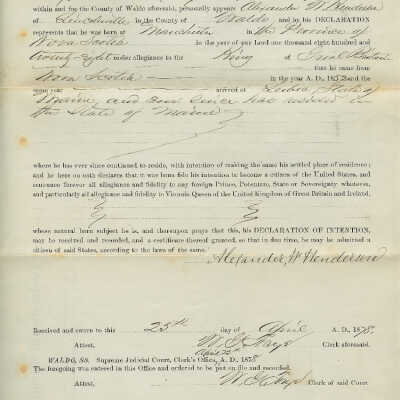 within and for the County of Waldo aforesaid, personally appears Alexander W. Henderson
of Lincolnville in the County of Waldo and by his DECLARATION
represents that he was born at Manchester in the Province of
Nova Scotia in the year of our Lord one thousand eight hundred and
twenty-eight under allegiance to the King of Great Britain
that he came from
Nova Scotia in the year A. D., 1852 and the
same year arrived at Lubec, State of
Maine, and ever since has resided in
the State of Maine
where he has ever since continued to reside, with intention of making the same his settled place of residence;
and he here on oath declares that it was bona fide his intention to become a citizen of the United States, and
renounce forever all allegiance and fidelity to any foreign Prince, Potentate, State or Sovereignty whatever,
and particularly all allegiance and fidelity to Victoria Queen of the United Kingdom of Great Britain and Ireland,
whose natural born subject he is, and thereupon prays that this, his DECLARATION OF INTENTION,
may be received and recorded, and a certificate thereof granted, so that in due time, he may be admitted
a citizen of said States, according to the laws of the same.
Alexander W Henderson
Received and sworn to this 25th day of April A. D., 1878.
Attest, Clerk aforesaid.
April 25
WALDO, SS. Supreme Judicial Court, Clerk's Office, A. D. 1878
The foregoing was entered in this Office and ordered to be put on file and recorded.
Attest, Clerk of said Court